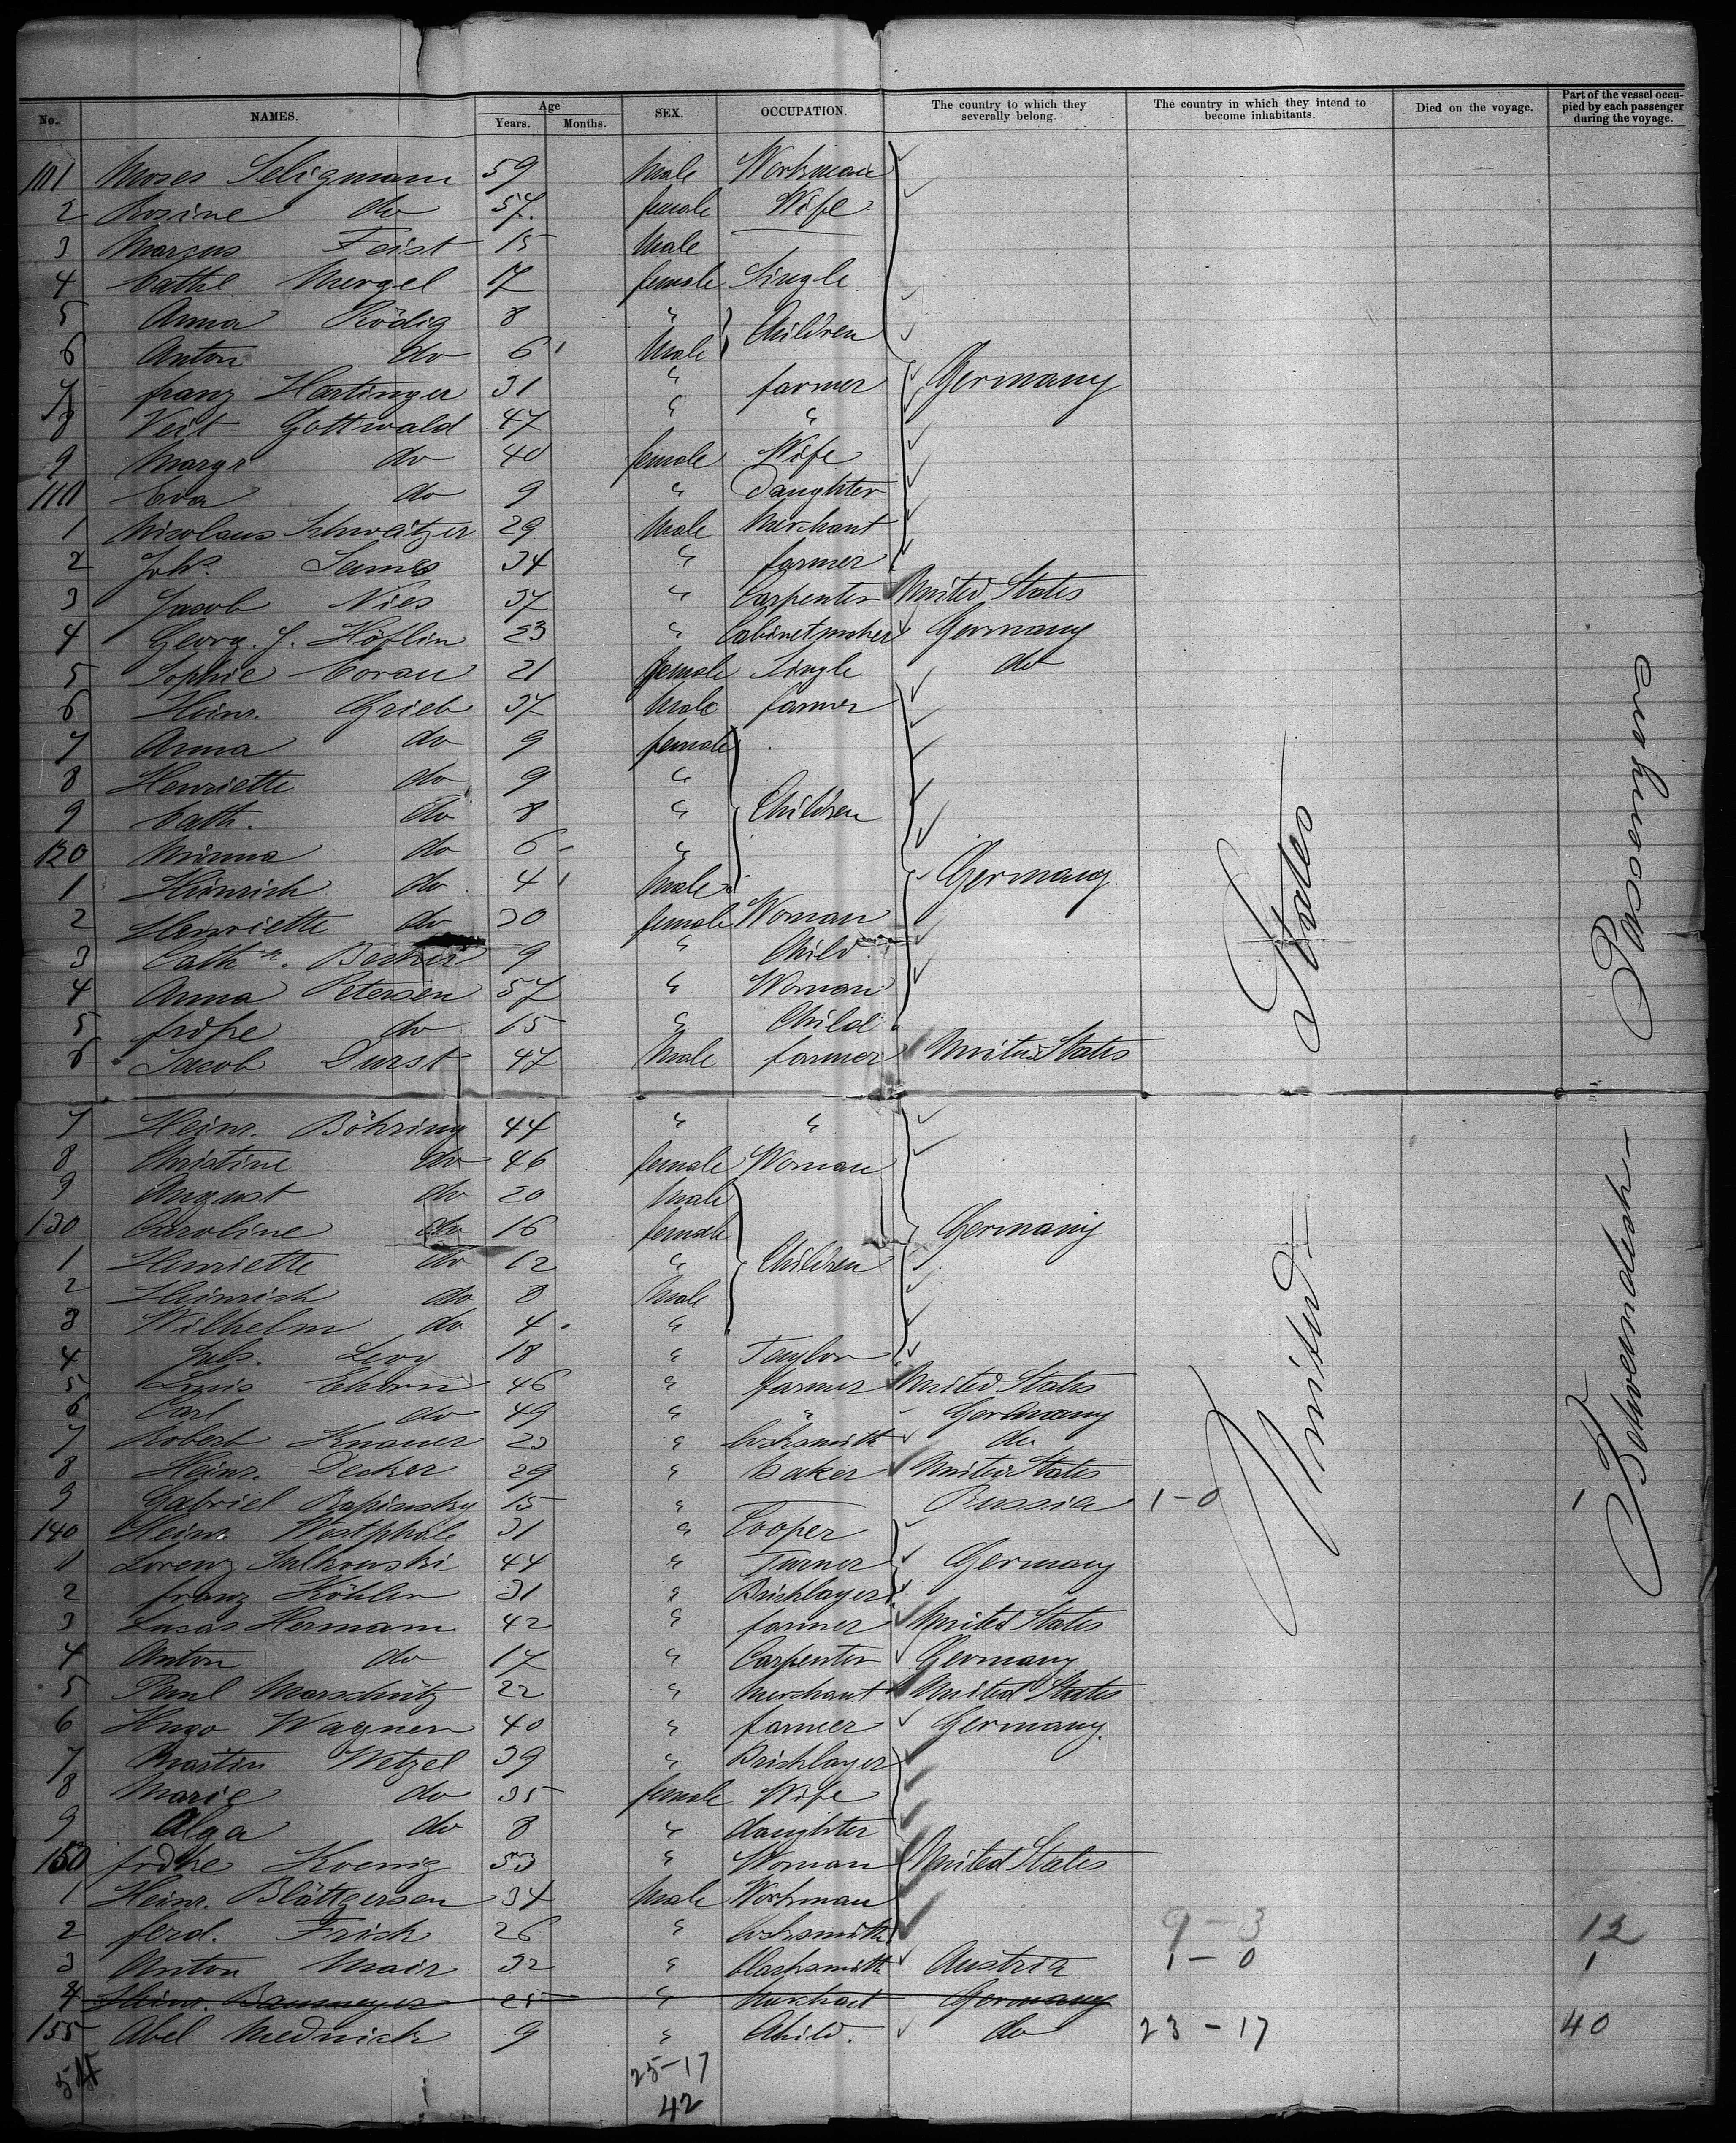 No. NAMES. Age Years. Months. SEX. OCCUPATION. The country to which they severally belong. The country in which they intend to become inhabitants. Died on the voyage. Part of the vessel occupied by each passenger during the voyage.
101 Moses Seligmann 59 Male Workman
2 Rosine do 57. female Wife
3 Marcus Feist 15 Male
4 Cathl. Mergel 17 female Single
5 Anna Rödig 8 " Children
6 Anton do 6 Male
7 franz Hartinger 31 " farmer Germany
8 Veit Gottwald 47 " "
9 Margr do 40 female Wife
110 Eva do 9 " Daughter
1 Nicolaus Schweitzer 29 Male Merchant
2 Johs. Sames 34 " farmer
3 Jacob Nies 37 " Carpenter United States
4 Georg. J. Höflin 23 " Cabinetmaker Germany
5 Sophie Coran 21 female Single do
6 Heinr. Grieb 37 Male farmer
7 Anna do 9 female
8 Henriette do 9 "
9 Cath. do 8 " Children
120 Minna do 6 "
1 Heinrich do 4 Male Germany
2 Henriette do 30 female Woman
3 Cathr. Becker 9 " Child
4 Anna Petersen 57 " Woman
5 frdke do 15 " Child
6 Jacob Durst 47 Male farmer United States
7 Heinr. Böhring 44 " "
8 Christine do 46 female Woman
9 August do 20 Male
130 Caroline do 16 female Germany
1 Henriette do 12 " Children
2 Heinrich do 8 Male
3 Wilhelm do 4 "
4 Levy 18 " Taylor
5 Louis 46 " farmer United States
6 Carl do 49 " " Germany
7 Robert Knauer 23 " Locksmith do
8 Heinr. Decker 29 " Baker United States
9 Gabriel Rapinsky 15 " Russia 1-0 1
140 Heinr. Westphale 31 " Cooper
1 Lorenz Sulkowski 44 " Turner Germany
2 franz Köhler 31 " Bricklayer
3 Lucas Hermann 42 " farmer United States
4 Anton do 17 " Carpenter Germany
5 Paul Marschütz 22 " Merchant United States
6 Hugo Wagner 40 " farmer Germany.
7 Martin Wetzel 39 " Bricklayer
8 Marie do 35 female Wife
9 Olga do 8 " daughter
150 frdke Koenig 53 " Woman United States
1 Heinr. 34 Male Workman
2 ferd. Frick 26 " Locksmith 9-3 12
3 Anton Mair 32 " Blacksmith Austria 1-0 1
4 Heinr. Baumeyer 25 " Merchant Germany
155 Abel Mednick 9 " Child. do 23-17 40
54 25-17
42
United States
Betweendeck Passengers